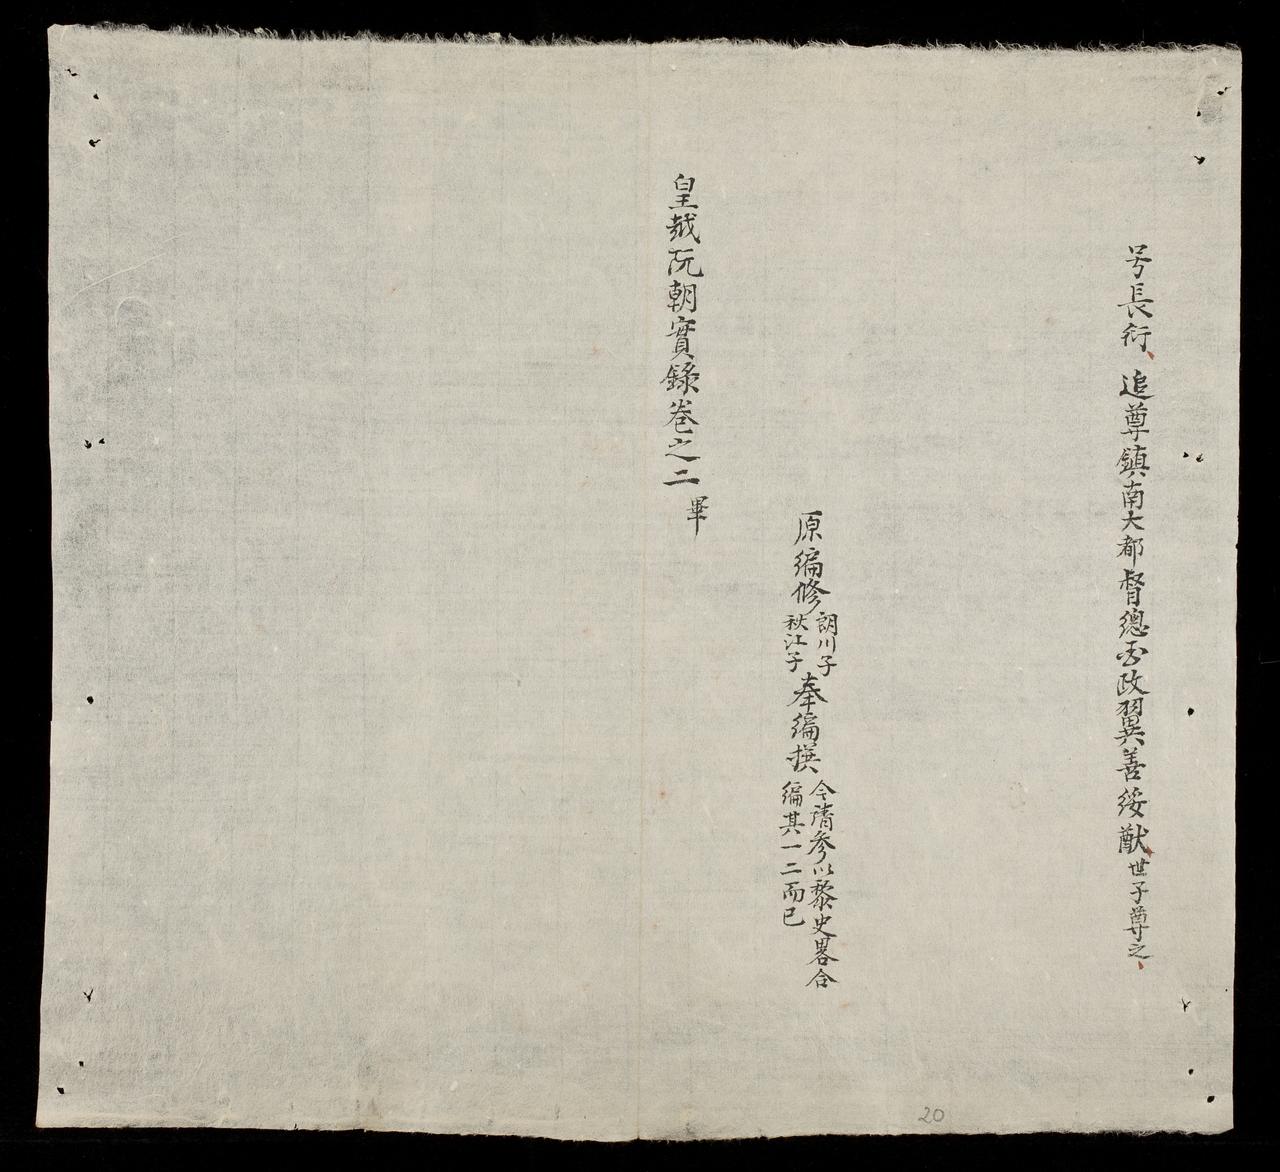 号長衍、追尊鎮南大都督總国政翼善綏猷、世子尊之、
原編修朗川子秋江子奉編撰今清参以黎史畧合編其一二而已
皇越阮朝實錄巻之二畢
20